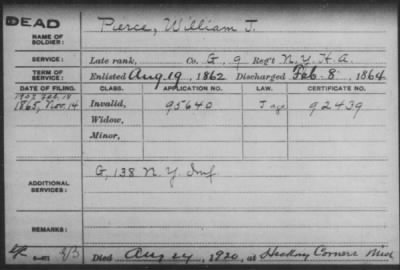 DEAD
Pierce, William J.
NAME OF SOLDIER:
SERVICE: Late rank, Co. G, 9 Reg't N.Y.H.A.
TERM OF SERVICE: Enlisted Aug. 19, 1862 Discharged Feb. 8, 1864
DATE OF FILING. CLASS. APPLICATION NO. LAW. CERTIFICATE NO.
1903 Feb. 18
1865, Nov. 14 Invalid, 95640 J age 92439
Widow,
Minor,
ADDITIONAL SERVICES: G, 138 N.Y. Inf.
REMARKS:
Died Aug 24, 1920, at Hickory Corners Mich